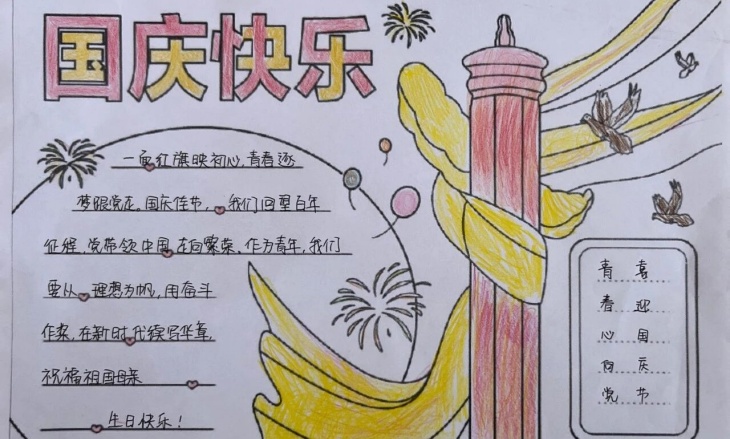 国庆快乐
一面红旗映初心,青春逐
梦跟党走。国庆佳节,我们回望百年
征程,党带领中国走向繁荣。作为青年,我们
要以理想为帆,用奋斗
作桨,在新时代续写华章,
祝福祖国母亲
生日快乐!
青 喜
春 迎
心 国
向 庆
党 节